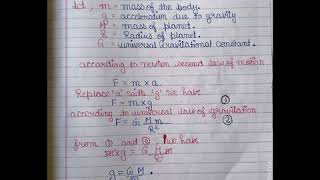 Let, m = mass of the body.
g = acceleration due to gravity
M = mass of planet.
R = Radius of planet.
G = universal Gravitational constant.
according to newton second law of motion
F = m × a.
Replace 'a' with 'g' we have
F = m × g ①
according to universal law of gravitation
F = G M m / R² ②
from ① and ②, we have
m × g = G M m / R²
g = G M / R²